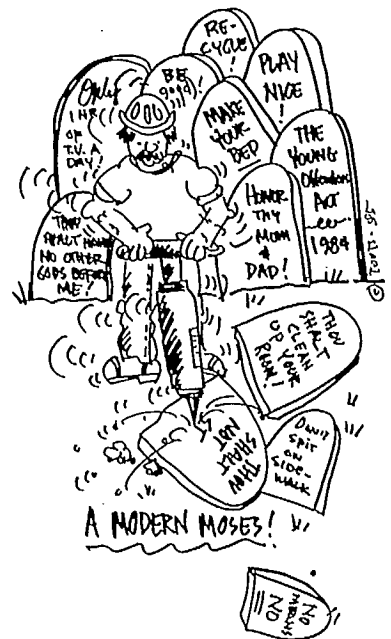 RE-
CYCLE!
PLAY
NICE
!
BE
good!
Only
1 HR
OF
T.V. A
DAY!
MAKE
YOUR
BED
THE
YOUNG
Offenders
ACT
1984
HONOR
THY
MOM
&
DAD!
THOU
SHALT HAVE
NO OTHER
GODS BEFORE
ME!
THOU
SHALT
CLEAN
UP YOUR
ROOM!
THOU
SHALT
NOT
DON'T
SPIT
ON
SIDE-
WALK
A MODERN MOSES!
NO
MEANS
NO